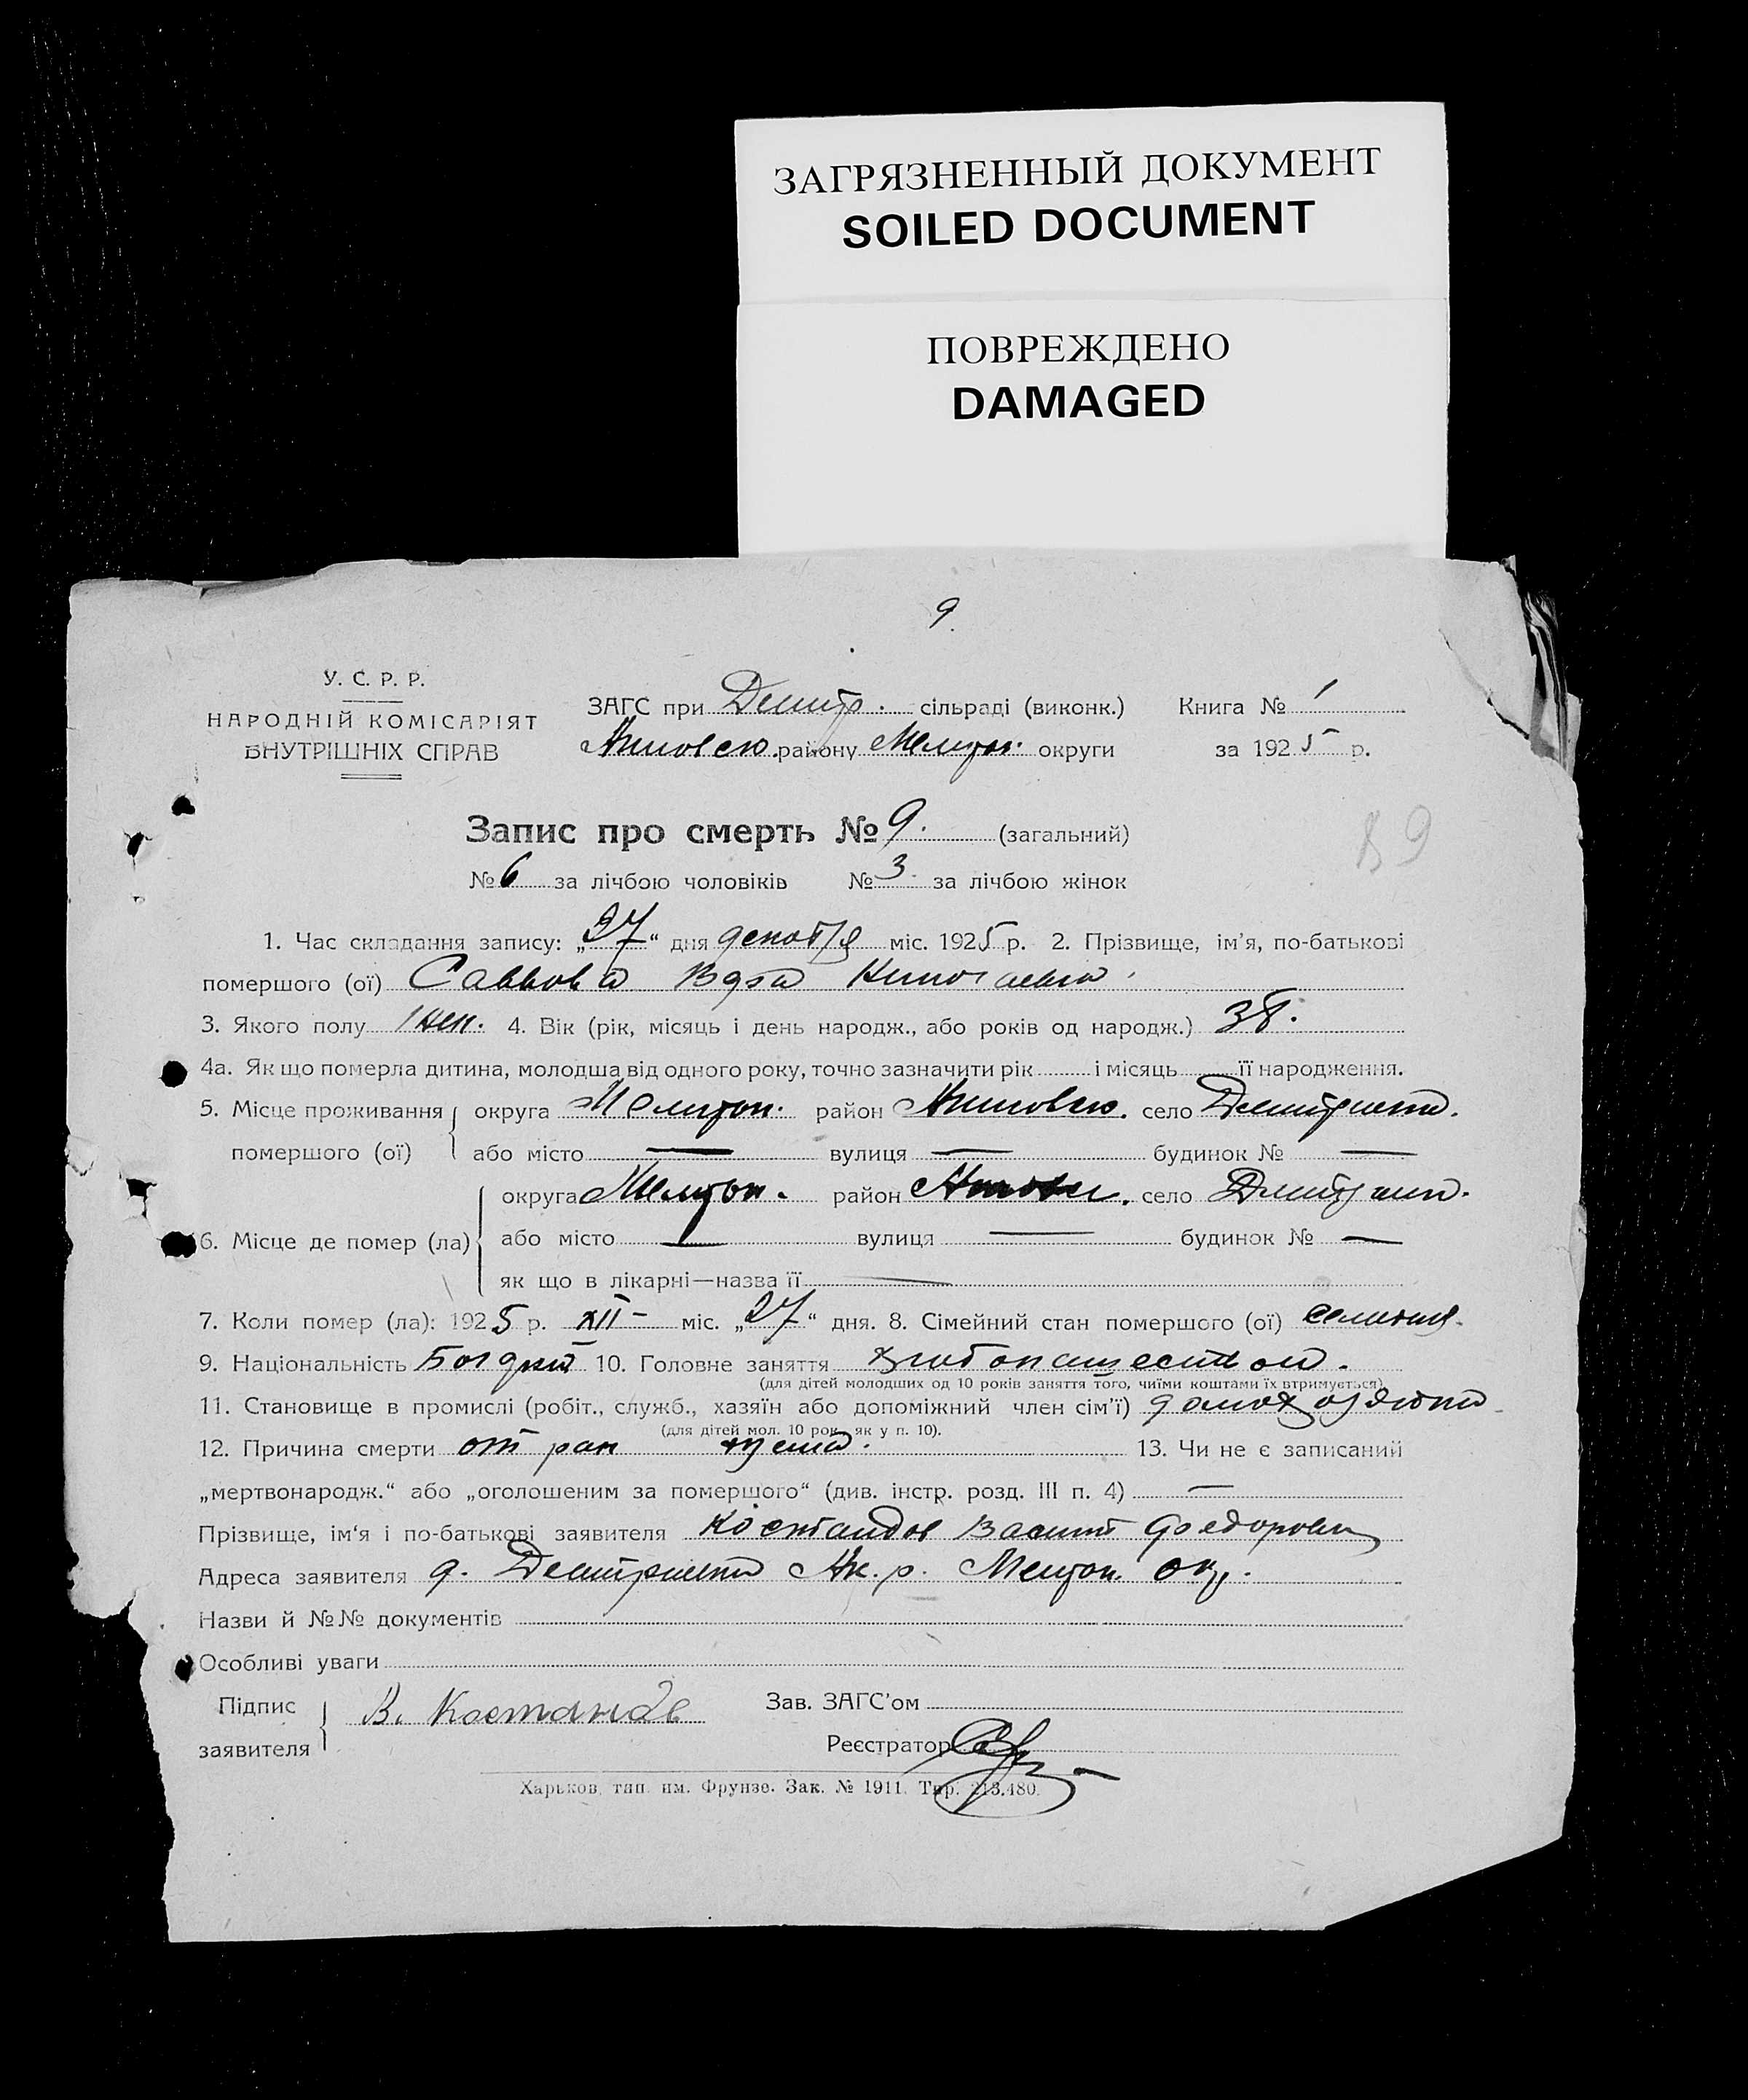 ЗАГРЯЗНЕННЫЙ ДОКУМЕНТ
SOILED DOCUMENT
ПОВРЕЖДЕНО
DAMAGED
9.
У. С. Р. Р.
НАРОДНІЙ КОМІСАРІЯТ
ВНУТРІШНІХ СПРАВ
ЗАГС при Дмитр. сільраді (виконк.) Книга № 1
району Мелитоп. округи за 1925 р.
Запис про смерть № 9. (загальний)
89
№ 6 за лічбою чоловіків № 3. за лічбою жінок
1. Час складання запису: „27“ дня декабря міс. 1925 р. 2. Прізвище, ім'я, по-батькові
помершого (ої) Саввова
3. Якого полу жен. 4. Вік (рік, місяць і день народж., або років од народж.) 38.
4а. Як що померла дитина, молодша від одного року, точно зазначити рік і місяць її народження.
5. Місце проживання округа Мелитоп. район село
помершого (ої) або місто — вулиця — будинок № —
округа Мелитоп. район село
6. Місце де помер (ла) або місто — вулиця — будинок № —
як що в лікарні—назва її —
7. Коли помер (ла): 1925 р. XII – міс. „27“ дня. 8. Сімейний стан помершого (ої)
9. Національність 10. Головне заняття хлебопашеством.
(для дітей молодших од 10 років заняття того, чиїми коштами їх втримується)
11. Становище в промислі (робіт., служб., хазяїн або допоміжний член сім'ї)
(для дітей мол. 10 рок. як у п. 10).
12. Причина смерти от 13. Чи не є записаний
„мертвонародж.“ або „оголошеним за помершого“ (див. інстр. розд. III п. 4) —
Прізвище, ім'я і по-батькові заявителя Костандов Федорович
Адреса заявителя д. Мелитоп. окр.
Назви й №№ документів
Особливі уваги
Підпис В. Костандов Зав. ЗАГС'ом
заявителя Реєстратор
Харьков, тип. им. Фрунзе. Зак. № 1911. Тир. 213.480.